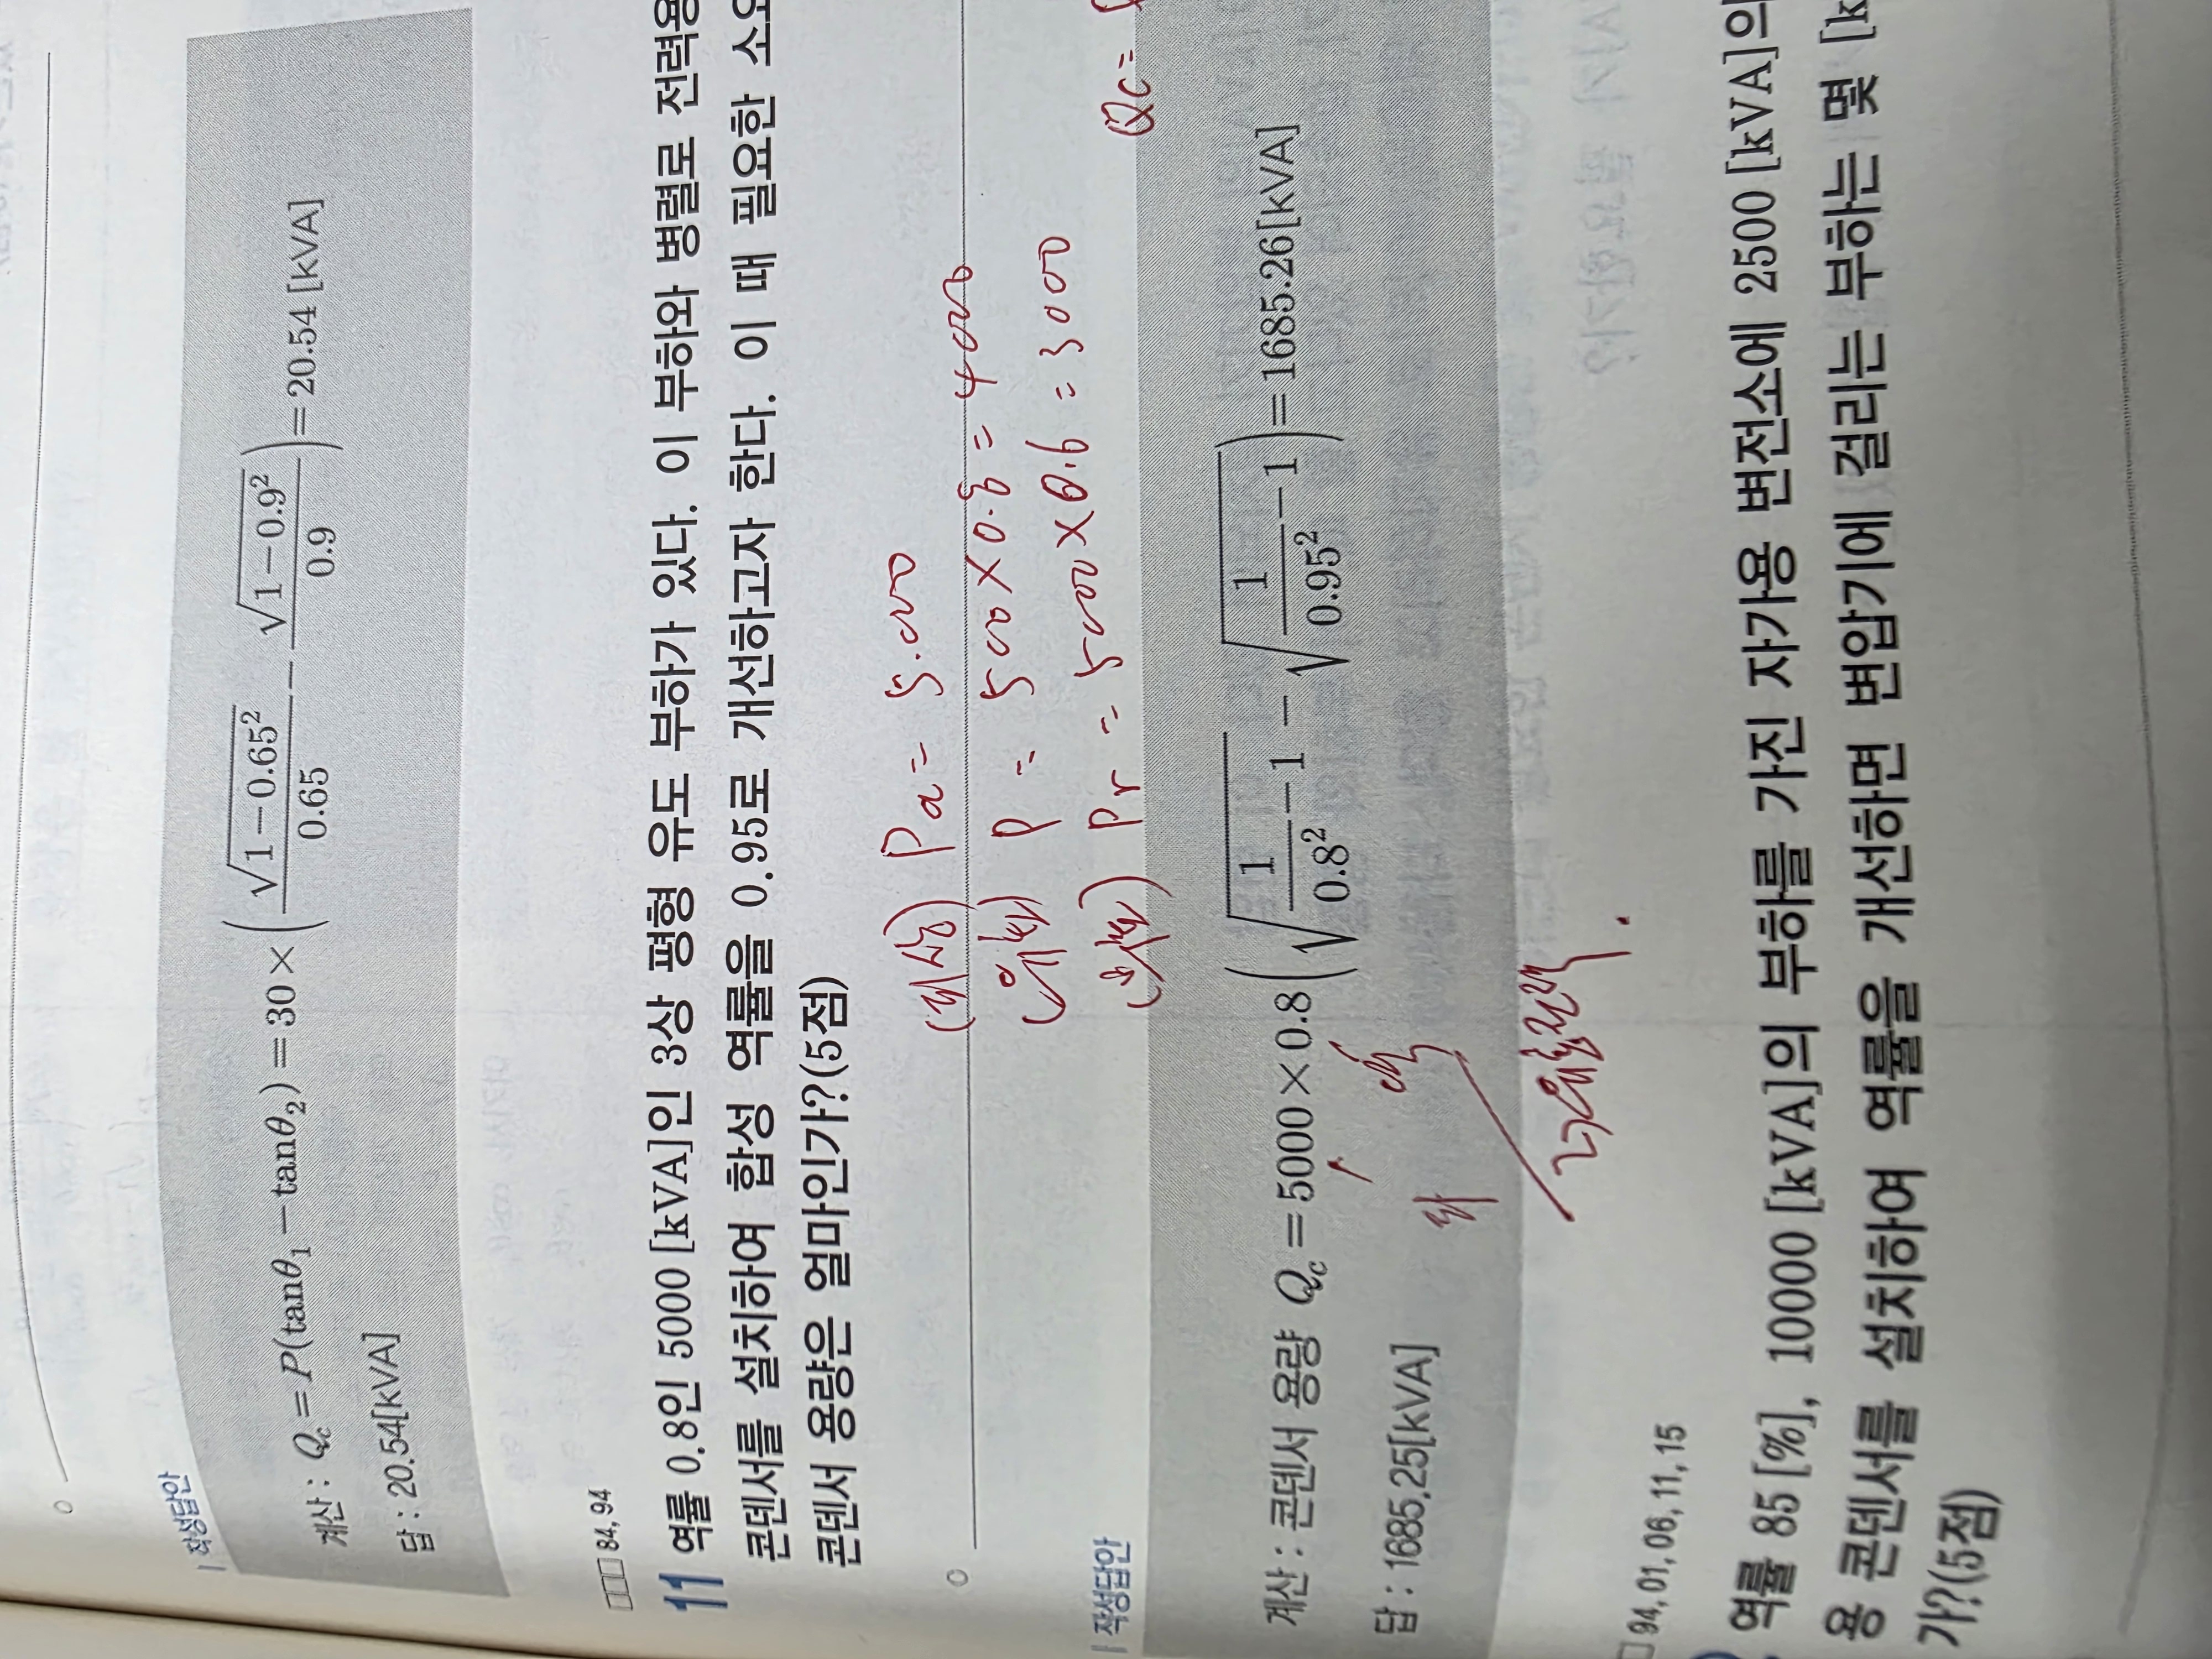 | 작성답안
계산 : Q_c = P(tanθ₁ − tanθ₂) = 30 × ( √(1−0.65²)/0.65 − √(1−0.9²)/0.9 ) = 20.54 [kVA]
답 : 20.54[kVA]
□□□ 84, 94
11 역률 0.8인 5000 [kVA]인 3상 평형 유도 부하가 있다. 이 부하와 병렬로 전력용
콘덴서를 설치하여 합성 역률을 0.95로 개선하고자 한다. 이 때 필요한 소요
콘덴서 용량은 얼마인가?(5점)
(피상) Pa = 5.000
(유효) P = 500 × 0.8 = 4000
(무효) Pr = 5000 × 0.6 = 3000
Qc =
| 작성답안
계산 : 콘덴서 용량 Q_c = 5000 × 0.8 ( √(1/0.8² − 1) − √(1/0.95² − 1) ) = 1685.26[kVA]
피
답 : 1685.25[kVA]
94, 01, 06, 11, 15
역률 85 [%], 10000 [kVA]의 부하를 가진 자가용 변전소에 2500 [kVA]의
용 콘덴서를 설치하여 역률을 개선하면 변압기에 걸리는 부하는 몇 [k
가?(5점)